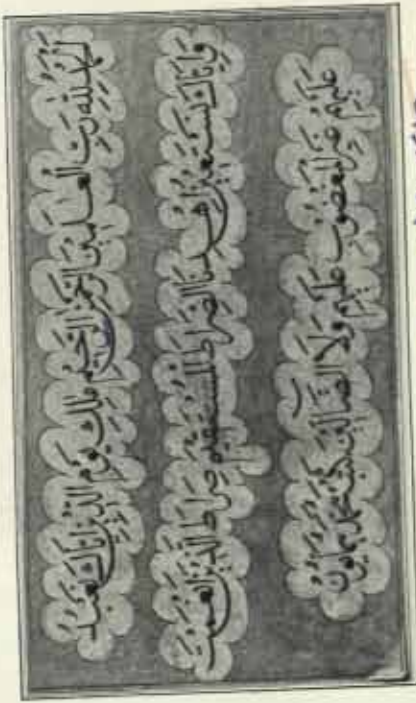 الْحَمْدُ لِلَّهِ رَبِّ الْعَالَمِينَ الرَّحْمَنِ الرَّحِيمِ مَالِكِ يَوْمِ الدِّينِ إِيَّاكَ نَعْبُدُ
وَإِيَّاكَ نَسْتَعِينُ اهْدِنَا الصِّرَاطَ الْمُسْتَقِيمَ صِرَاطَ الَّذِينَ أَنْعَمْتَ
عَلَيْهِمْ غَيْرِ الْمَغْضُوبِ عَلَيْهِمْ وَلَا الضَّالِّينَ كتبه محمد همايون